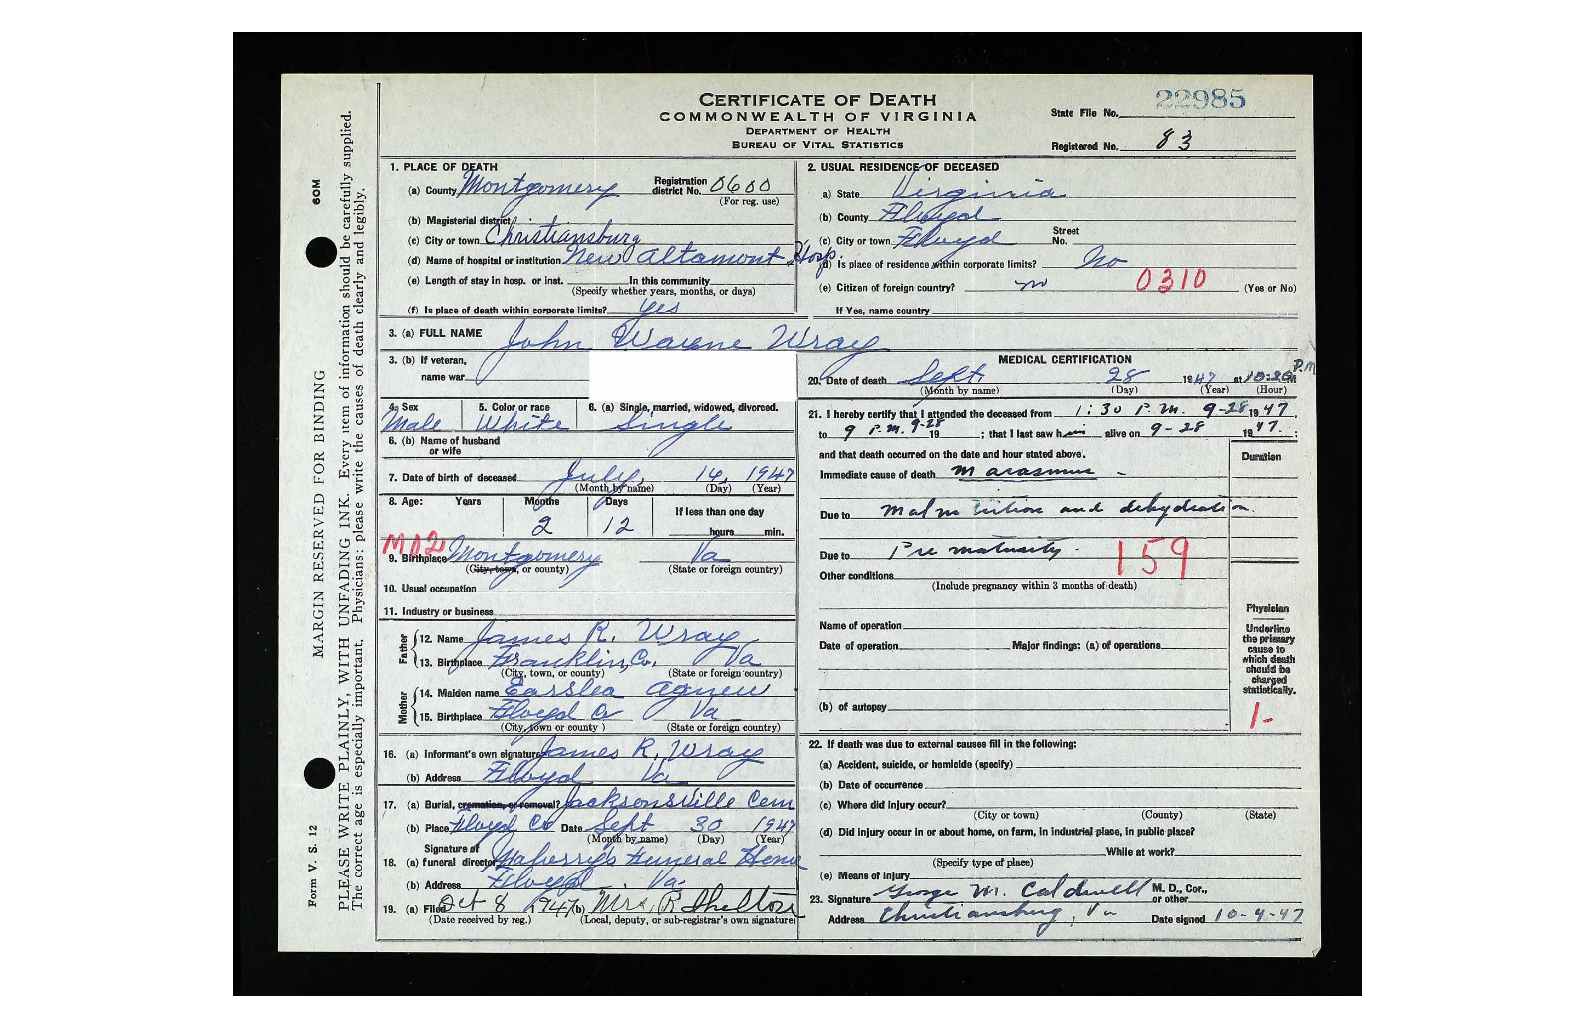 CERTIFICATE OF DEATH
COMMONWEALTH OF VIRGINIA
DEPARTMENT OF HEALTH
BUREAU OF VITAL STATISTICS
State File No. 22985
Registered No. 83
60M
MARGIN RESERVED FOR BINDING
Form V. S. 12
PLEASE WRITE PLAINLY, WITH UNFADING INK. Every item of information should be carefully supplied.
The correct age is especially important. Physicians: please write the causes of death clearly and legibly.
1. PLACE OF DEATH
(a) County Montgomery Registration district No. 0600
(For reg. use)
(b) Magisterial district
(c) City or town Christiansburg
(d) Name of hospital or institution New Altamont Hosp.
(e) Length of stay in hosp. or inst. In this community
(Specify whether years, months, or days)
(f) Is place of death within corporate limits? yes
2. USUAL RESIDENCE OF DECEASED
a) State Virginia
(b) County Floyd
(c) City or town Floyd Street No.
(d) Is place of residence within corporate limits? No
(e) Citizen of foreign country? no 0310 (Yes or No)
If Yes, name country
3. (a) FULL NAME John Wayne Wray
3. (b) If veteran,
name war
4. Sex Male
5. Color or race White
6. (a) Single, married, widowed, divorced. Single
6. (b) Name of husband
or wife
7. Date of birth of deceased July 14, 1947
(Month by name) (Day) (Year)
8. Age: Years Months 2 Days 12 If less than one day
hours min.
9. Birthplace Montgomery Va
(City, town, or county) (State or foreign country)
10. Usual occupation
11. Industry or business
Father
12. Name James R. Wray
13. Birthplace Franklin Co. Va
(City, town, or county) (State or foreign country)
Mother
14. Maiden name Earslea Agnew
15. Birthplace Floyd Co Va
(City, town or county ) (State or foreign country)
16. (a) Informant's own signature James R. Wray
(b) Address Floyd Va
17. (a) Burial, cremation, or removal? Jacksonsville Cem
(b) Place Floyd Co Date Sept 30 1947
(Month by name) (Day) (Year)
Signature of
18. (a) funeral director Maberry's Funeral Home
(b) Address Floyd Va.
19. (a) Filed Oct 8 1947 (b) Mrs. R Shelton
(Date received by reg.) (Local, deputy, or sub-registrar's own signature)
MEDICAL CERTIFICATION
20. Date of death Sept. 28 1947 at 10:20 P.M
(Month by name) (Day) (Year) (Hour)
21. I hereby certify that I attended the deceased from 1:30 P.M. 9-28 1947,
to 9 P.M. 9-28 19 ; that I last saw him alive on 9-28 1947. ;
and that death occurred on the date and hour stated above. Duration
Immediate cause of death Marasmus -
Due to Malnutrition and dehydration.
Due to Prematurity. 159
Other conditions
(Include pregnancy within 3 months of death)
Name of operation
Date of operation Major findings: (a) of operations
(b) of autopsy
Physician
Underline
the primary
cause to
which death
should be
charged
statistically.
1-
22. If death was due to external causes fill in the following:
(a) Accident, suicide, or homicide (specify)
(b) Date of occurrence
(c) Where did injury occur?
(City or town) (County) (State)
(d) Did injury occur in or about home, on farm, in industrial place, in public place?
While at work?
(Specify type of place)
(e) Means of injury
23. Signature George M. Caldwell M. D., Cor., or other
Address Christiansburg, Va Date signed 10-4-47